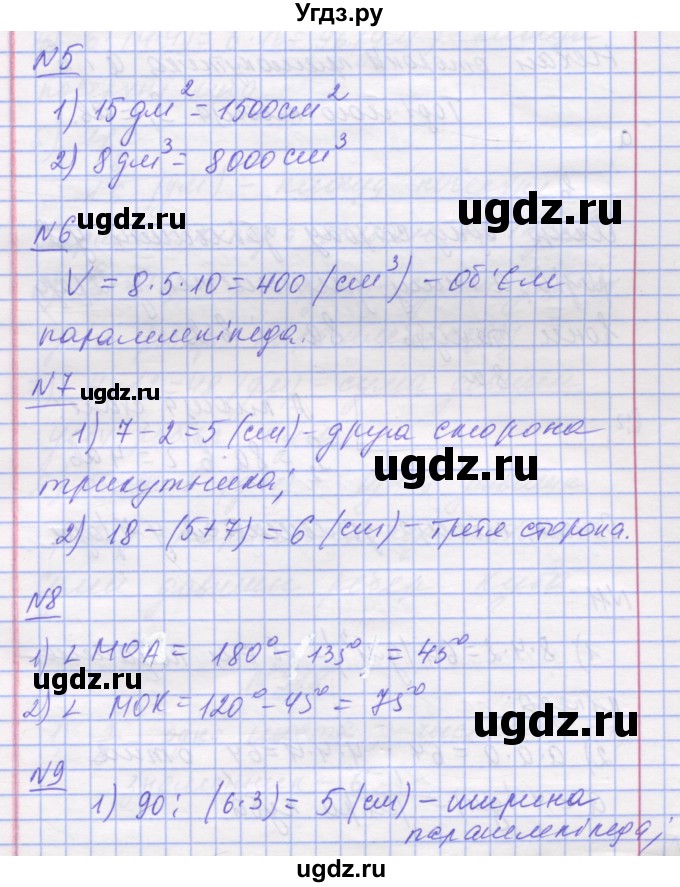 Угдз.ру
№5
1) 15 дм² = 1500 см²
2) 8 дм³ = 8000 см³
ugdz.ru
ugdz.ru
№6
V = 8·5·10 = 400 (см³) – об'єм
паралелепіпеда.
№7
ugdz.ru
1) 7 – 2 = 5 (см) – друга сторона
ugdz.ru
трикутника;
2) 18 – (5+7) = 6 (см) – третя сторона.
№8
1) ∠ МОА = 180° – 135° = 45°
ugdz.ru
2) ∠ МОК = 120° – 45° = 75°
ugdz.ru
№9
1) 90 : (6·3) = 5 (см) – ширина
паралелепіпеда;
ugdz.ru